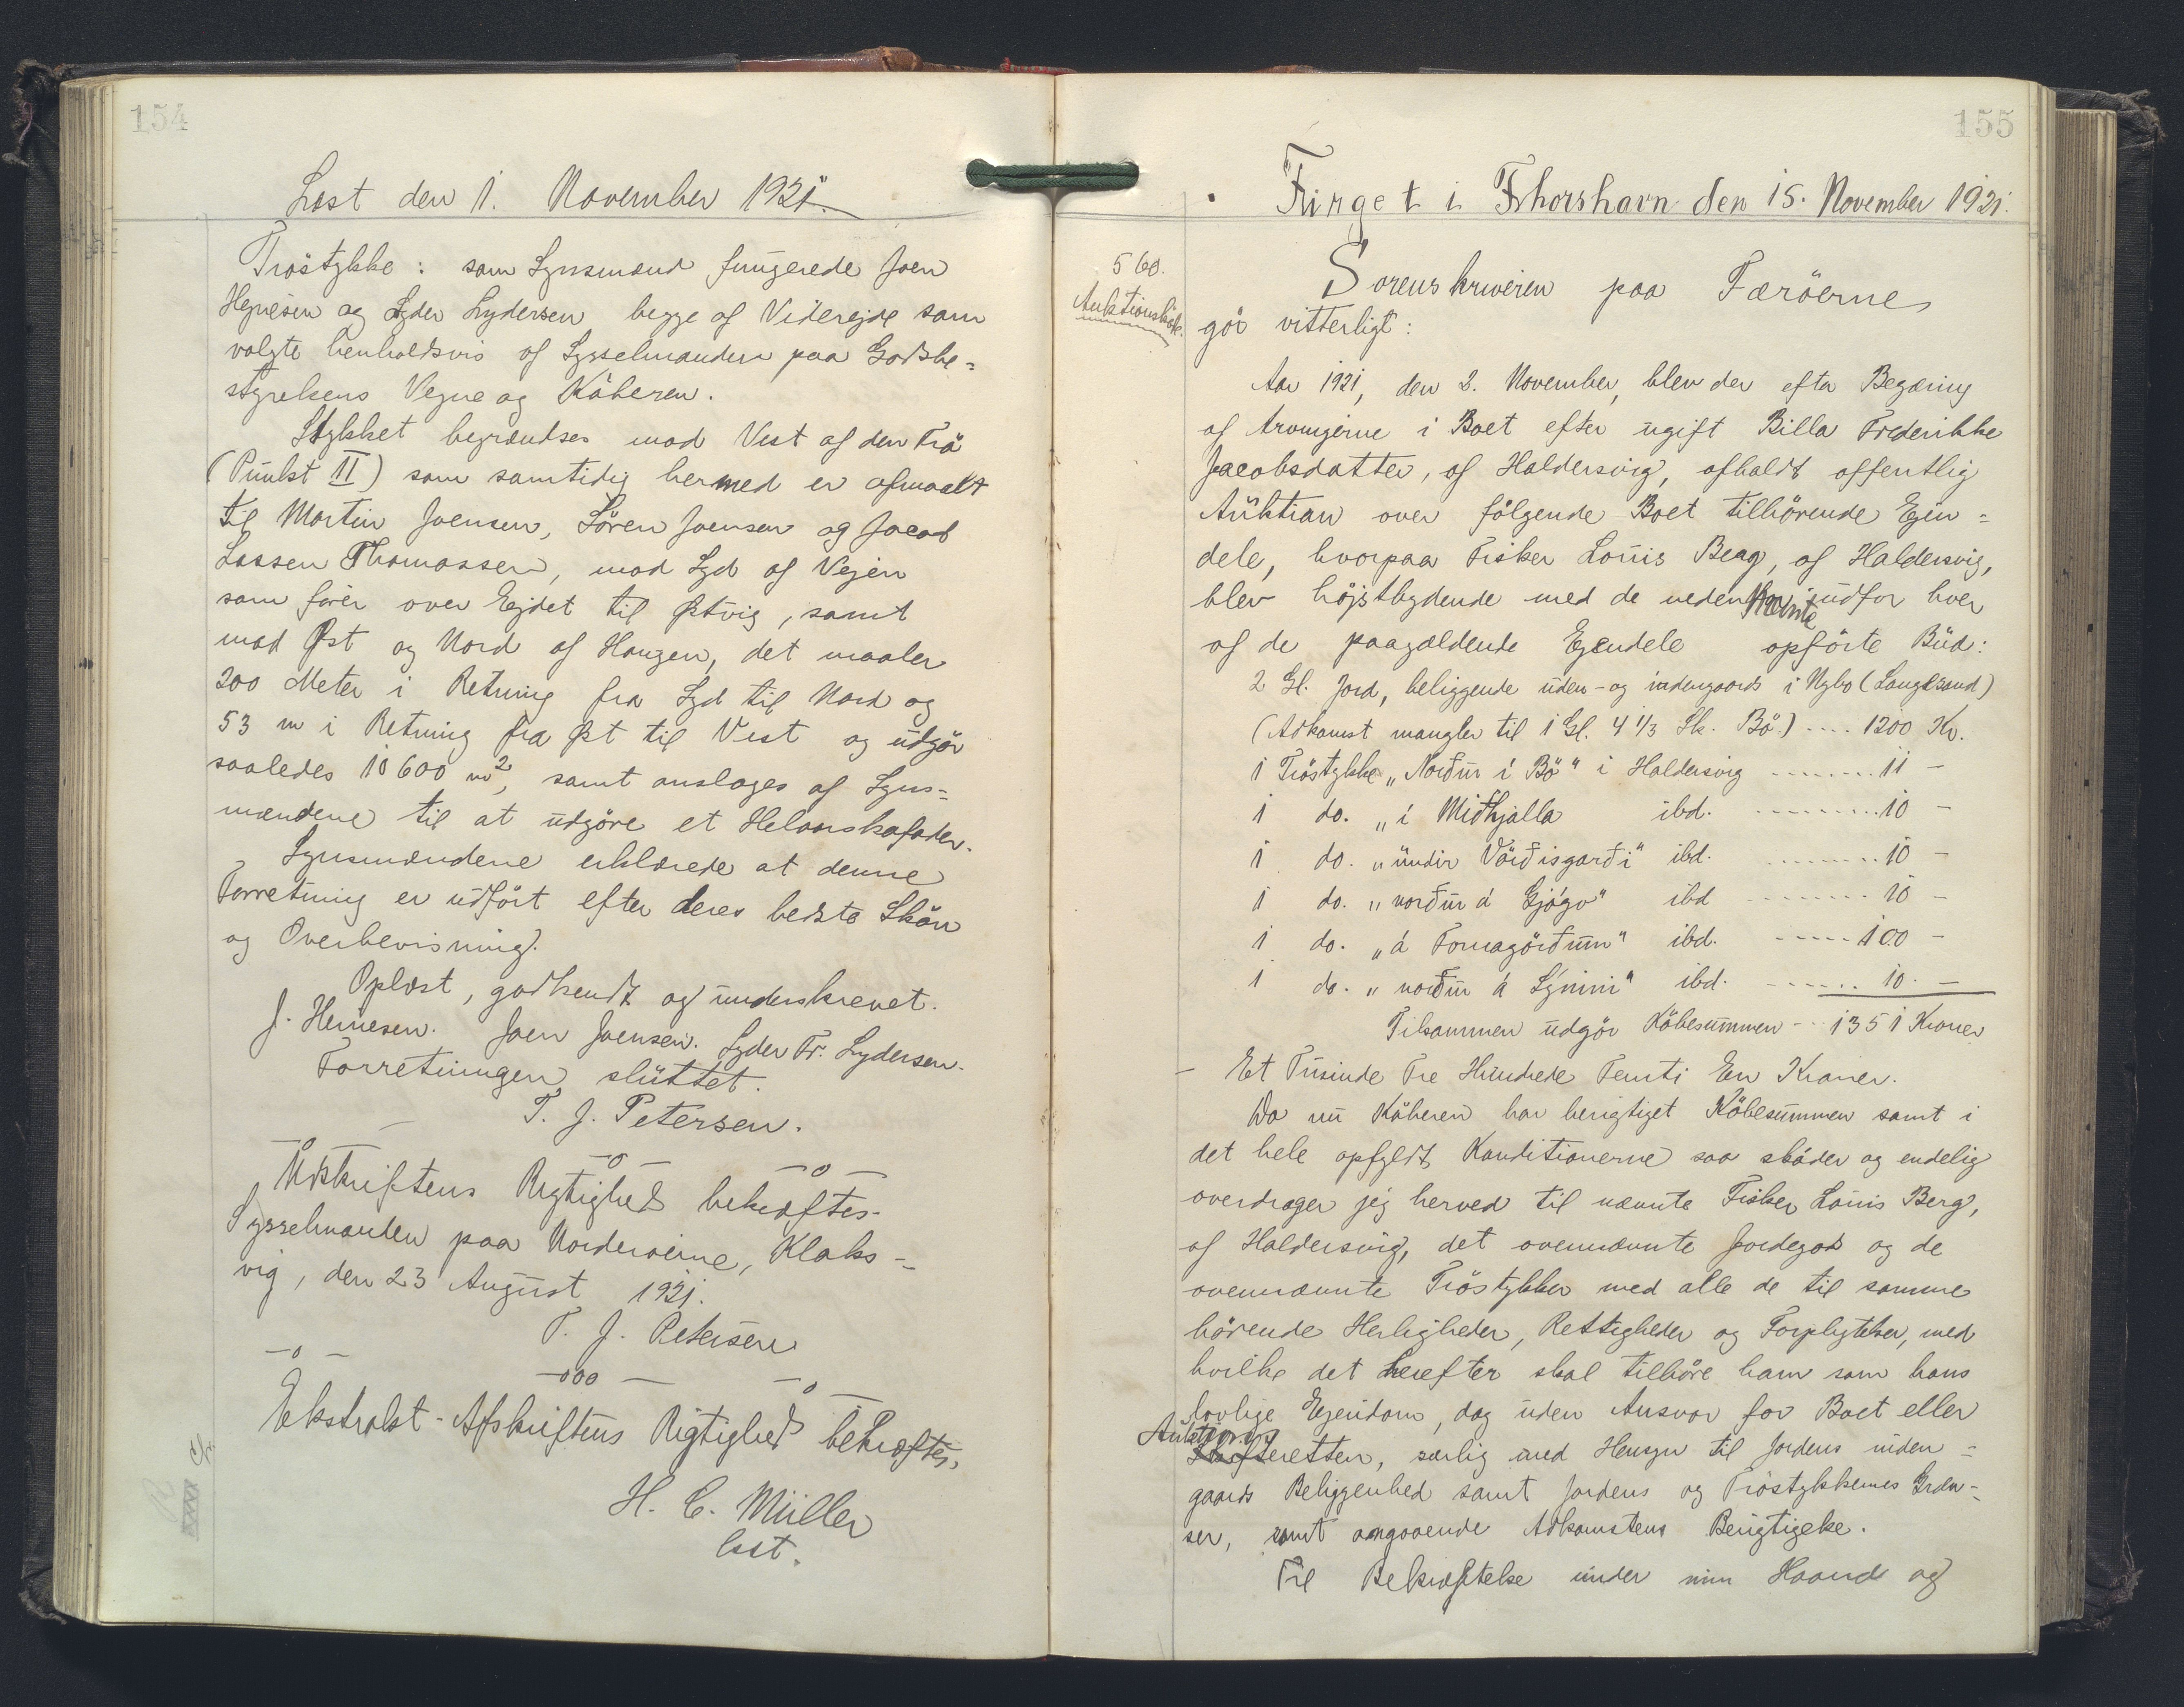 154
Læst den 1. November 1921.
Tröstykke: som Synsmænd fungerede Joen
Hejnesen og Lyder Lydersen begge af Viderejde som
valgte henholdsvis af Sysselmanden paa Godsbe=
styrelsens Vegne og Köberen.
Stykket begrændses mod Vest af den Trö
(Punkt II) som samtidig hermed er afmaalt
til Martin Joensen, Sören Joensen og Jacob
Lassen Thomassen, mod Syd af Vejen
som förer over Ejdet til Østvig, samt
mod Øst og Nord af Haugen, det maaler
200 Meter i Retning fra Syd til Nord og
53 m i Retning fra Øst til Vest og udgör
saaledes 10600 m², samt anslages af Syns=
mændene til at udgöre et Helaarskofoder.
Synsmændene erklærede at denne
Forretning er udfört efter deres bedste Skön
og Overbevisning.
Oplæst, godkendt og underskrevet.
J. Heinesen. Joen Joensen. Lyder Fr. Lydersen.
Forretningen sluttet.
T. J. Petersen.
—o— —o— —o—
Udskriftens Rigtighed bekræftes.
Sysselmanden paa Norderøerne, Klaks=
vig, den 23 August 1921.
T. J. Petersen
—o— —ooo— —o—
Ekstrakt-Afskriftens Rigtighed bekræftes,
H. C. Müller
cst.
155
Tinget i Thorshavn den 15. November 1921.
560.
Auktionsskøde.
Sorenskriveren paa Færöerne
gör vitterligt:
Aar 1921, den 2. November, blev der efter Begæring
af Arvingerne i Boet efter ugift Billa Frederikke
Jacobsdatter, af Haldersvig, afholdt offentlig
Auktion over fölgende Boet tilhörende Ejen=
dele, hvorpaa Fisker Louis Berg, af Haldersvig,
blev höjstbydende med de nedennævnte udfor hver
af de paagældende Ejendele opförte Bud:
2 Gl. Jord, beliggende uden- og indengaards i Nybo (Langesand)
(Adkomst mangler til 1 Gl. 4 1/3 Sk. Bö.) .... 1200 Kr.
1 Tröstykke „Norður í Bö" i Haldersvig ........ 11 —
1 do. „í Miðhjalla ibd. ........ 10 —
1 do. „undir Vörðisgarði" ibd. ........ 10 —
1 do. „norður á Gjógv" ibd ........ 10 —
1 do. „á Fornagörðum" ibd. ..... 100 —
1 do. „norður á Lýnini" ibd. ...... 10. —
Tilsammen udgör Köbesummen .. 1351 Kroner
— Et Tusinde Tre Hundrede Femti En Kroner.
Da nu Köberen har berigtiget Köbesummen samt i
det hele opfyldt Konditionerne saa sköder og endelig
overdrager jeg herved til nævnte Fisker Louis Berg,
af Haldersvig, det ovennævnte Jordegods og de
ovennævnte Tröstykker med alle de til samme
hörende Herligheder, Rettigheder og Forpligtelser, med
hvilke det herefter skal tilhöre ham som hans
lovlige Ejendom, dog uden Ansvar for Boet eller
Auktions
Skifteretten, særlig med Hensyn til Jordens inden=
gaards Beliggenhed samt Jordens og Tröstykkernes Græn=
ser, samt angaaende Adkomstens Berigtigelse.
Til Bekræftelse under min Haand og